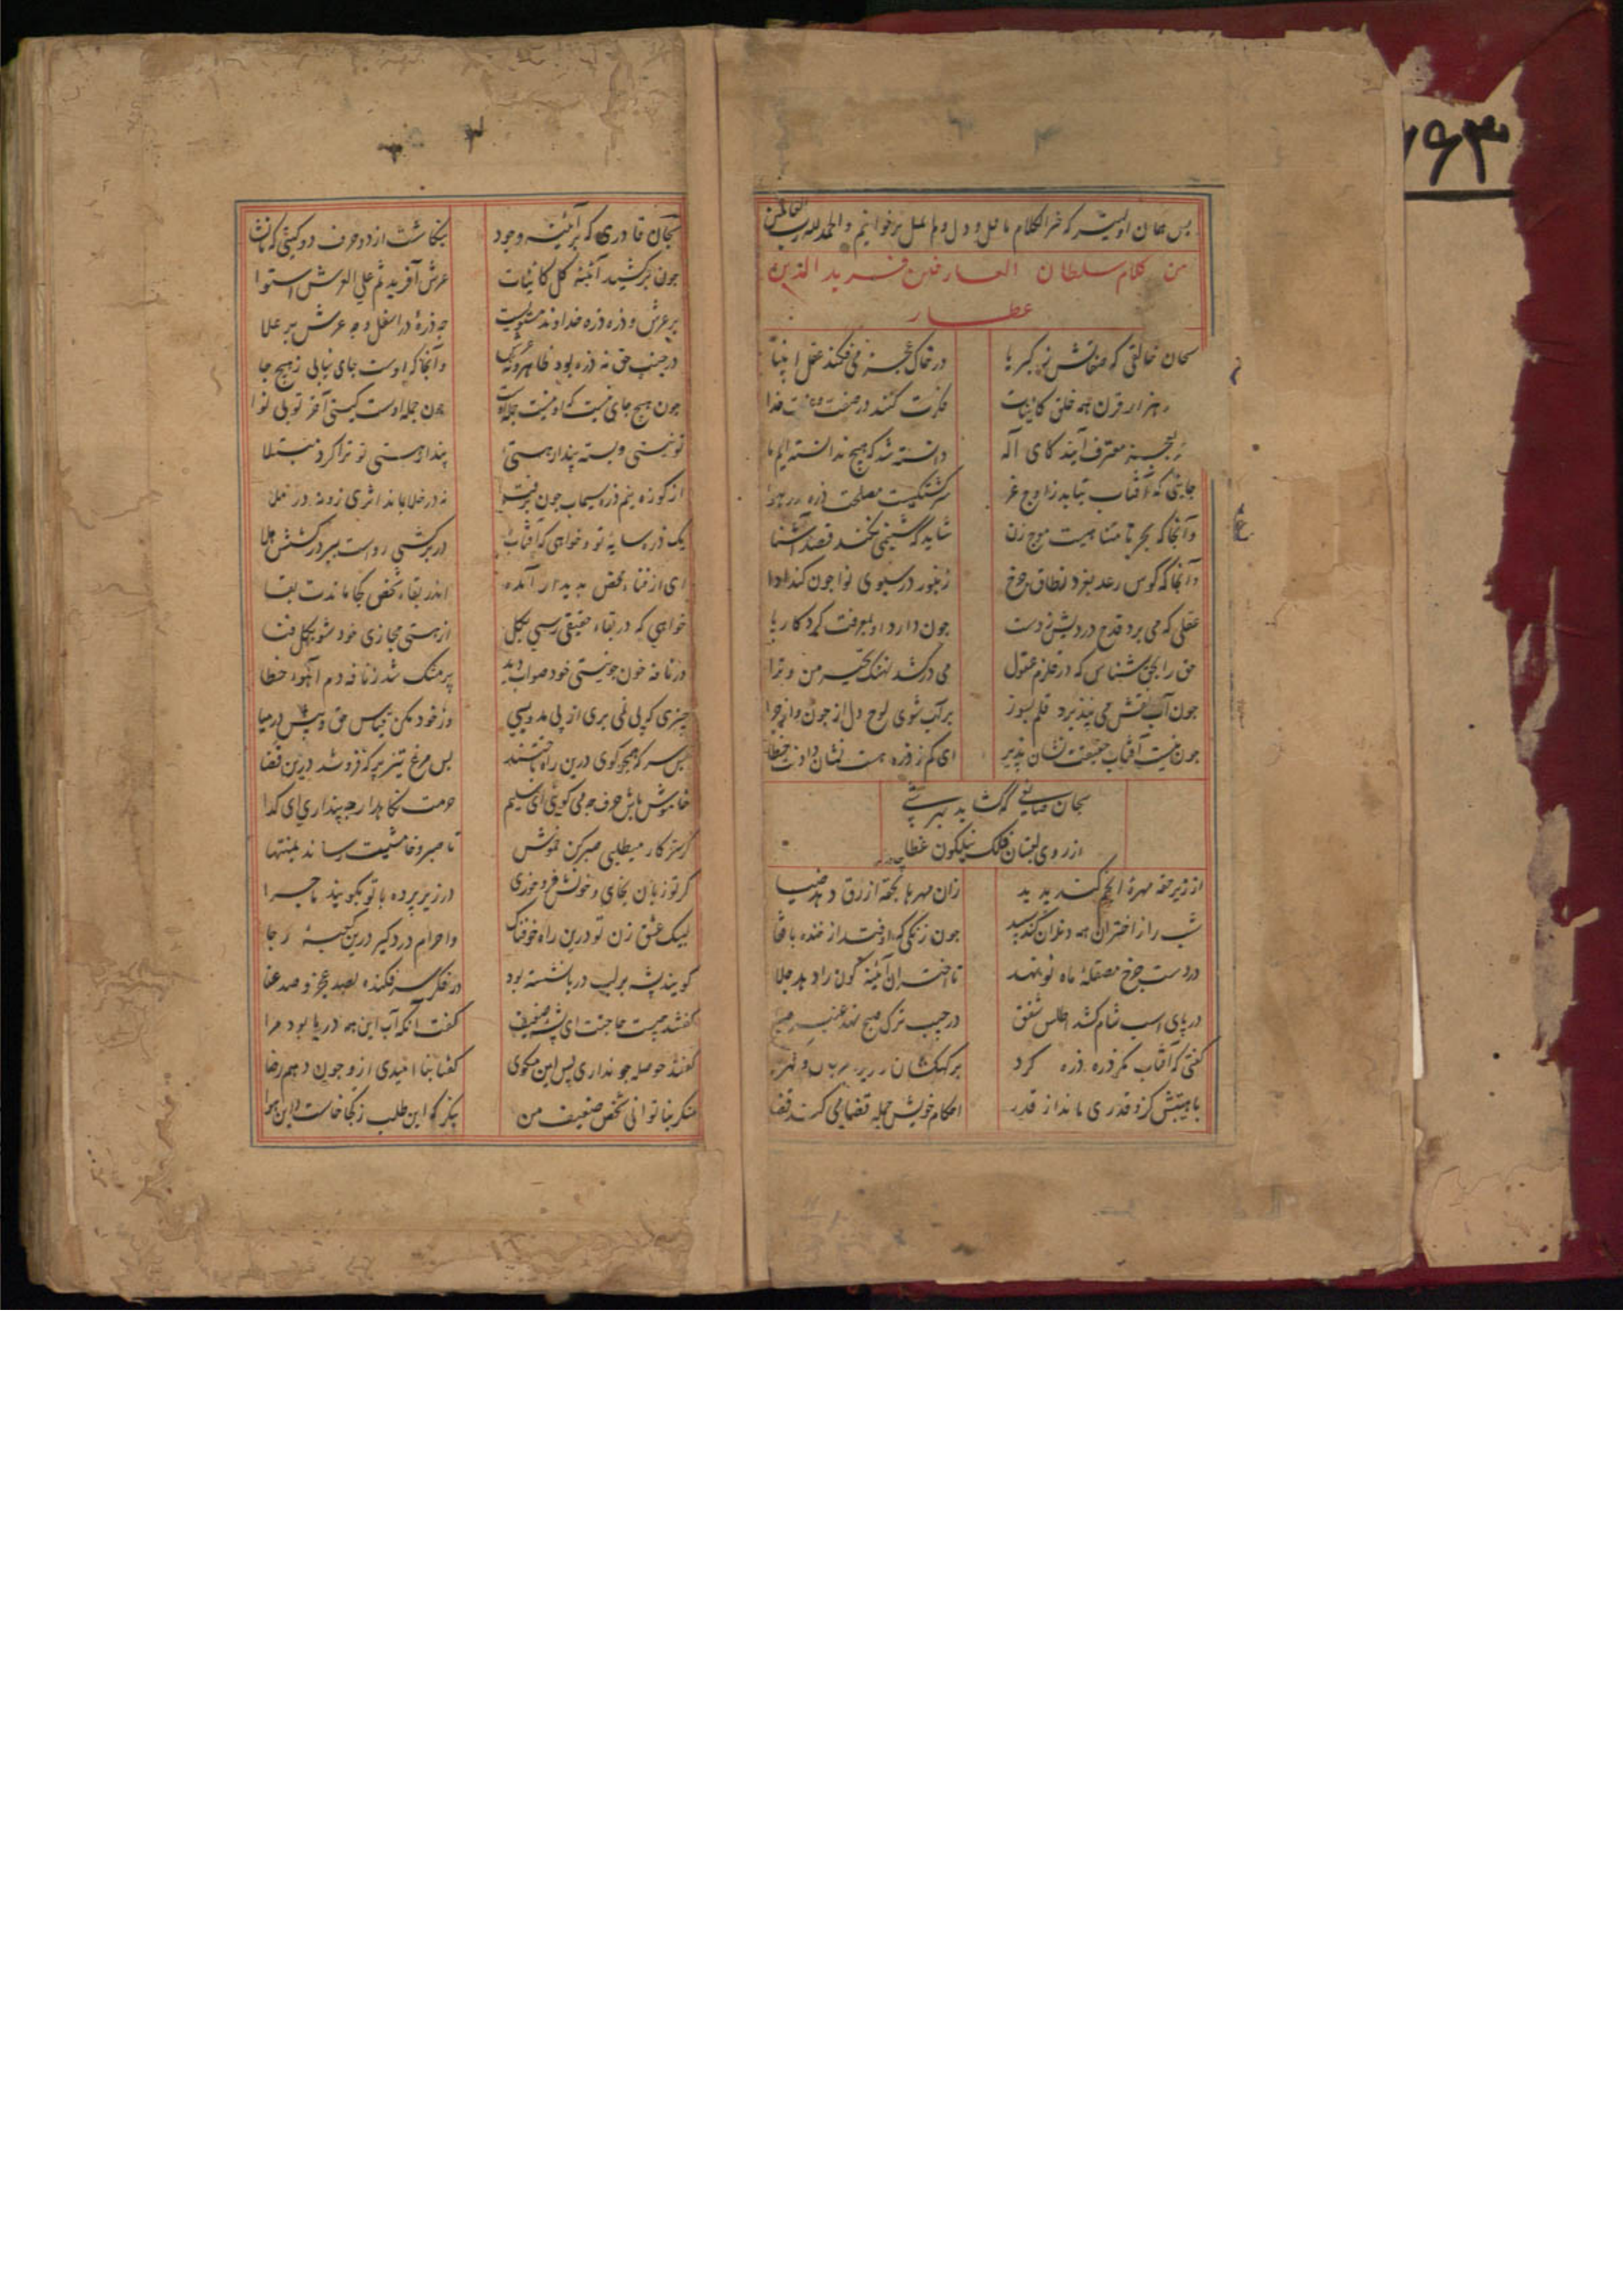 ۷۶۳
پس همان اولیتر که خیر الکلام ما قل و دل و لم یمل برخوانیم و الحمد لله رب العالمین
من کلام سلطان العارفین فرید الدین
عطار
سبحان خالقی که صفاتش ز کبریا در خاک عجز می‌فکند عقل انبیا
هزار قرن همه خلق کاینات فکرت کنند در صفت خدا
معترف آیند کای اله دانسته شد که هیچ ندانسته‌ایم ما
جایی که آفتاب بتابد ز اوج عز سرگشتگیست مصلحت ذره در هوا
و آنجا که بحر نامتناهیست موج زن شاید که شبنمی نکند قصد آشنا
و آنجا که کوس رعد بغرد ز طاق چرخ زنبور در سبوی نوا چون کند ادا
عقلی که می برد قدح دردیش ز دست چون دارد او بمعرفت کردکار پا
حق را بحق شناس که در قلزم عقول می درکشد نهنک تحیر من و ترا
چون آب نقش می نپذیرد قلم بسوز بر آب شوی لوح دل از چون و از چرا
چون نیست آفتاب حقیقت نشان پذیر ای کم ز ذره هست نشان دادنت خطا
سبحان صانعی که گشاید بهر شبی
از روی لعبتان فلک نیلگون غطا
از زیر حقه مهره انجم کند پدید زان مهرها بحقه ازرق دهد ضیا
شب را ز اختران همه دندان کند سپید چون زنگی که اوفتد از خنده با قفا
در دست چرخ مصقله ماه نو نهد تا اختران آینه گون را دهد جلا
در پای اسب شام کشد اطلس شفق در جیب ترک صبح نهد عنبر صبا
گفتی که آفتاب مگر ذره ذره کرد بر کهکشان
با هیبتش کزو قدری ماند از قدر احکام خویش جمله قضا می کند قضا
سبحان قادری که بر آئینه وجود بنگاشت از دو حرف دو گیتی کما یشا
چون برکشید آینه کل کاینات عرش آفرید ثم علی العرش استوا
بر عرش و ذره ذره خداوند مستویست چه ذره در اسفل و چه عرش بر علا
در جنب حق نه ذره بود ظاهر و نه عرش و آنجا که اوست جای نیابی ز هیچ جا
چون هیچ جای نیست که او نیست جمله اوست چون جمله اوست کیستی آخر تو بی نوا
تو نیستی و بسته پندار هستی پندار هستی تو ترا کرد مبتلا
از کوزه نیم ذره سیماب چون برفت نه در خلا بماند اثری زو نه در ملا
یک ذره سایه تو و خواهی که آفتاب در برکشی رواست ببر درکشش هلا
ای از فنای محض پدیدار آمده اندر بقای محض کجا ماندت بقا
خواهی که در بقاء حقیقی رسی بکل از هستی مجازی خود شو بکل فنا
در نافه خون چو نیستی خود صواب دید پر مشک شد ز نافه دم آهوی خطا
چیزی که پی نمی بری از پی مدو بسی وز خود مکن قیاس حق و بیش ازین میا
بس سر که همچو گوی درین راه باختند بس مرغ تیز پر که فرو شد درین فضا
خاموش باش حرف چه می گویی ای سلیم حرمت نگاه دار چه پنداری ای گدا
گر سر کار میطلبی صبر کن خموش تا صبر و خامشیت رساند بمنتها
گر تو زبان بخایی و خونش فرو خوری در زیر پرده با تو بگویند ماجرا
لبیک عشق زن تو درین راه خوفناک و احرام درد گیر درین کعبه رجا
گویند پشه بر لب دریا نشسته بود در فکر سر فکنده بصد عجز و صد عنا
گفتند چیست حاجتت ای پشه ضعیف گفت آنکه آب این همه دریا بود مرا
گفتند حوصله چو نداری پس این مگوی گفتا بنا امیدی ازو چون دهم رضا
منگر بناتوانی شخص ضعیف من بنگر که این طلب ز کجا خاست و این هوا